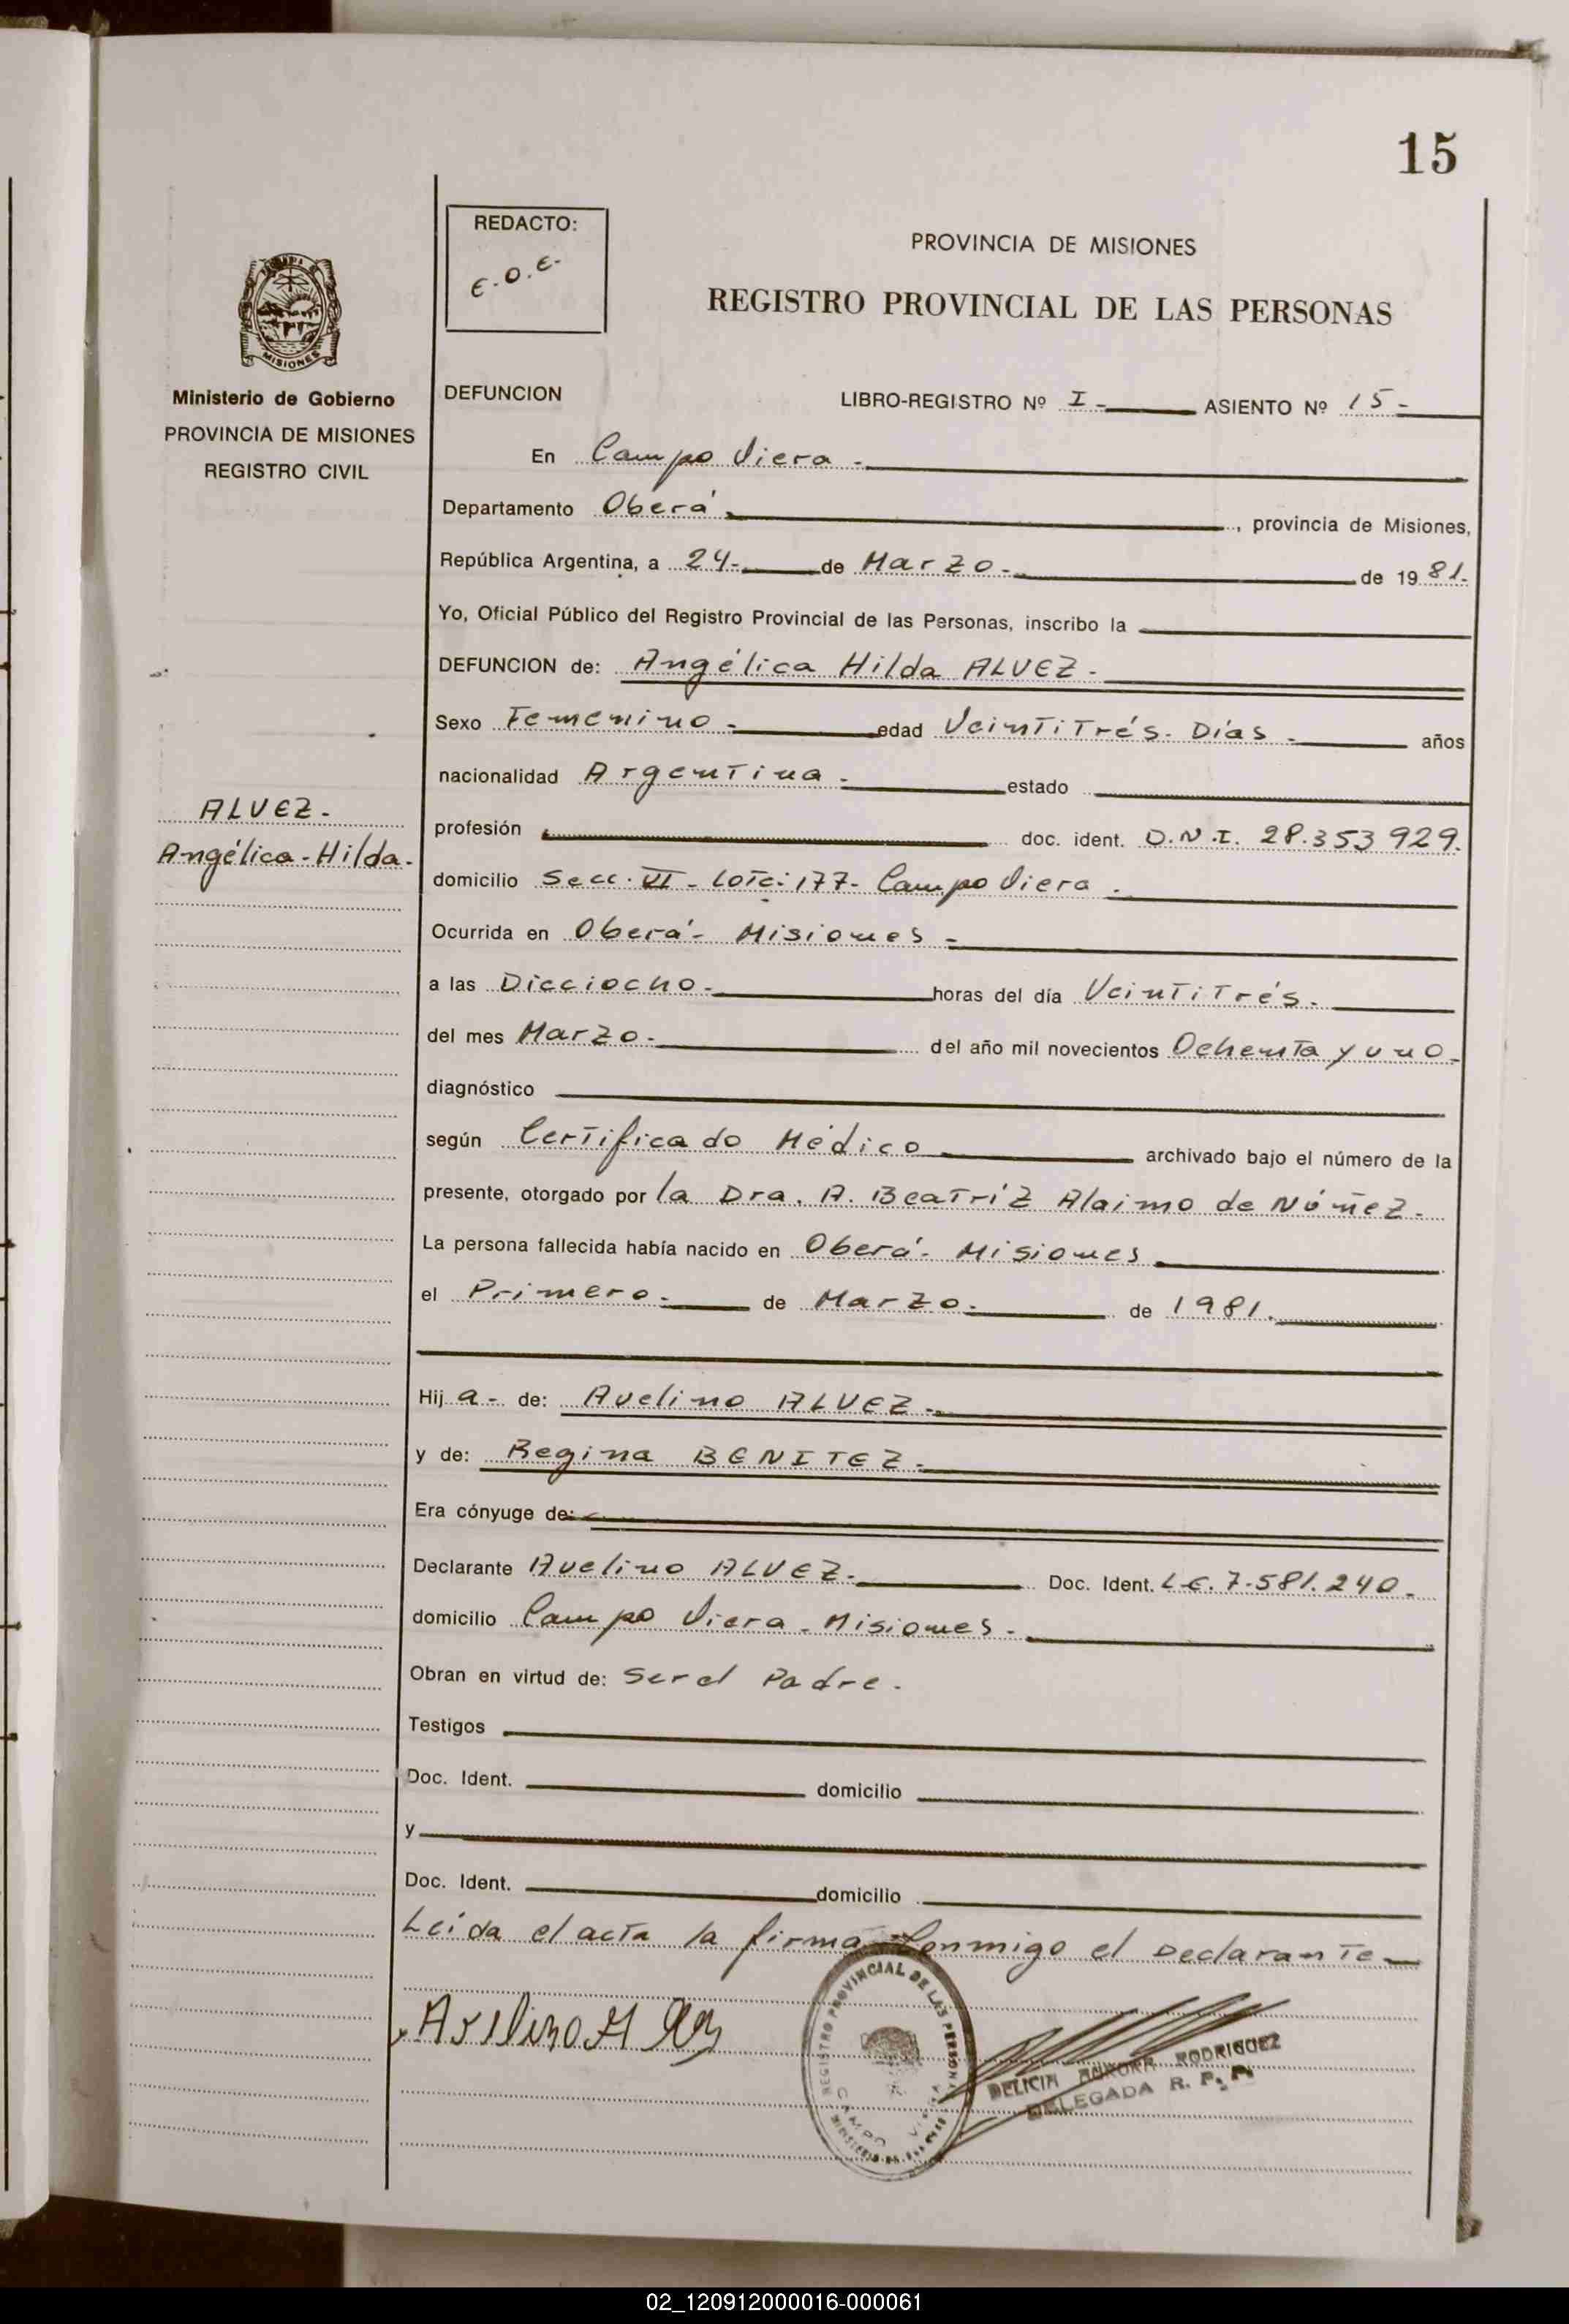 15
REDACTO:
E.O.E.-
PROVINCIA DE MISIONES
REGISTRO PROVINCIAL DE LAS PERSONAS
MISIONES
Ministerio de Gobierno
PROVINCIA DE MISIONES
REGISTRO CIVIL
DEFUNCION LIBRO-REGISTRO Nº I- ASIENTO Nº 15-
En Campo Viera-
Departamento Oberá-, provincia de Misiones,
República Argentina, a 24- de Marzo- de 1981-
Yo, Oficial Público del Registro Provincial de las Personas, inscribo la
DEFUNCION de: Angélica Hilda ALVEZ-
Sexo Femenino- edad Veintitrés- Días- años
nacionalidad Argentina- estado
ALVEZ-
Angélica-Hilda-
profesión doc. ident. D.N.I. 28.353929.
domicilio Secc. VI- Lote: 177- Campo Viera.
Ocurrida en Oberá- Misiones-
a las Dieciocho- horas del día Veintitrés-
del mes Marzo- del año mil novecientos Ochenta y uno-
diagnóstico
según Certificado Médico archivado bajo el número de la
presente, otorgado por la Dra. A. Beatríz Alaimo de Núñez-
La persona fallecida había nacido en Oberá- Misiones
el Primero- de Marzo- de 1981.
Hija- de: Avelino ALVEZ-
y de: Regina BENITEZ-
Era cónyuge de:
Declarante Avelino ALVEZ- Doc. Ident. L.E. 7.581.240-
domicilio Campo Viera- Misiones-
Obran en virtud de: Ser el Padre-
Testigos
Doc. Ident. domicilio
y
Doc. Ident. domicilio
Leída el acta la firma Conmigo el Declarante-
Avelino
REGISTRO PROVINCIAL DE LAS PERSONAS
CAMPO VIERA
DELICIA AURORA RODRIGUEZ
DELEGADA R. P. P.
02_120912000016-000061